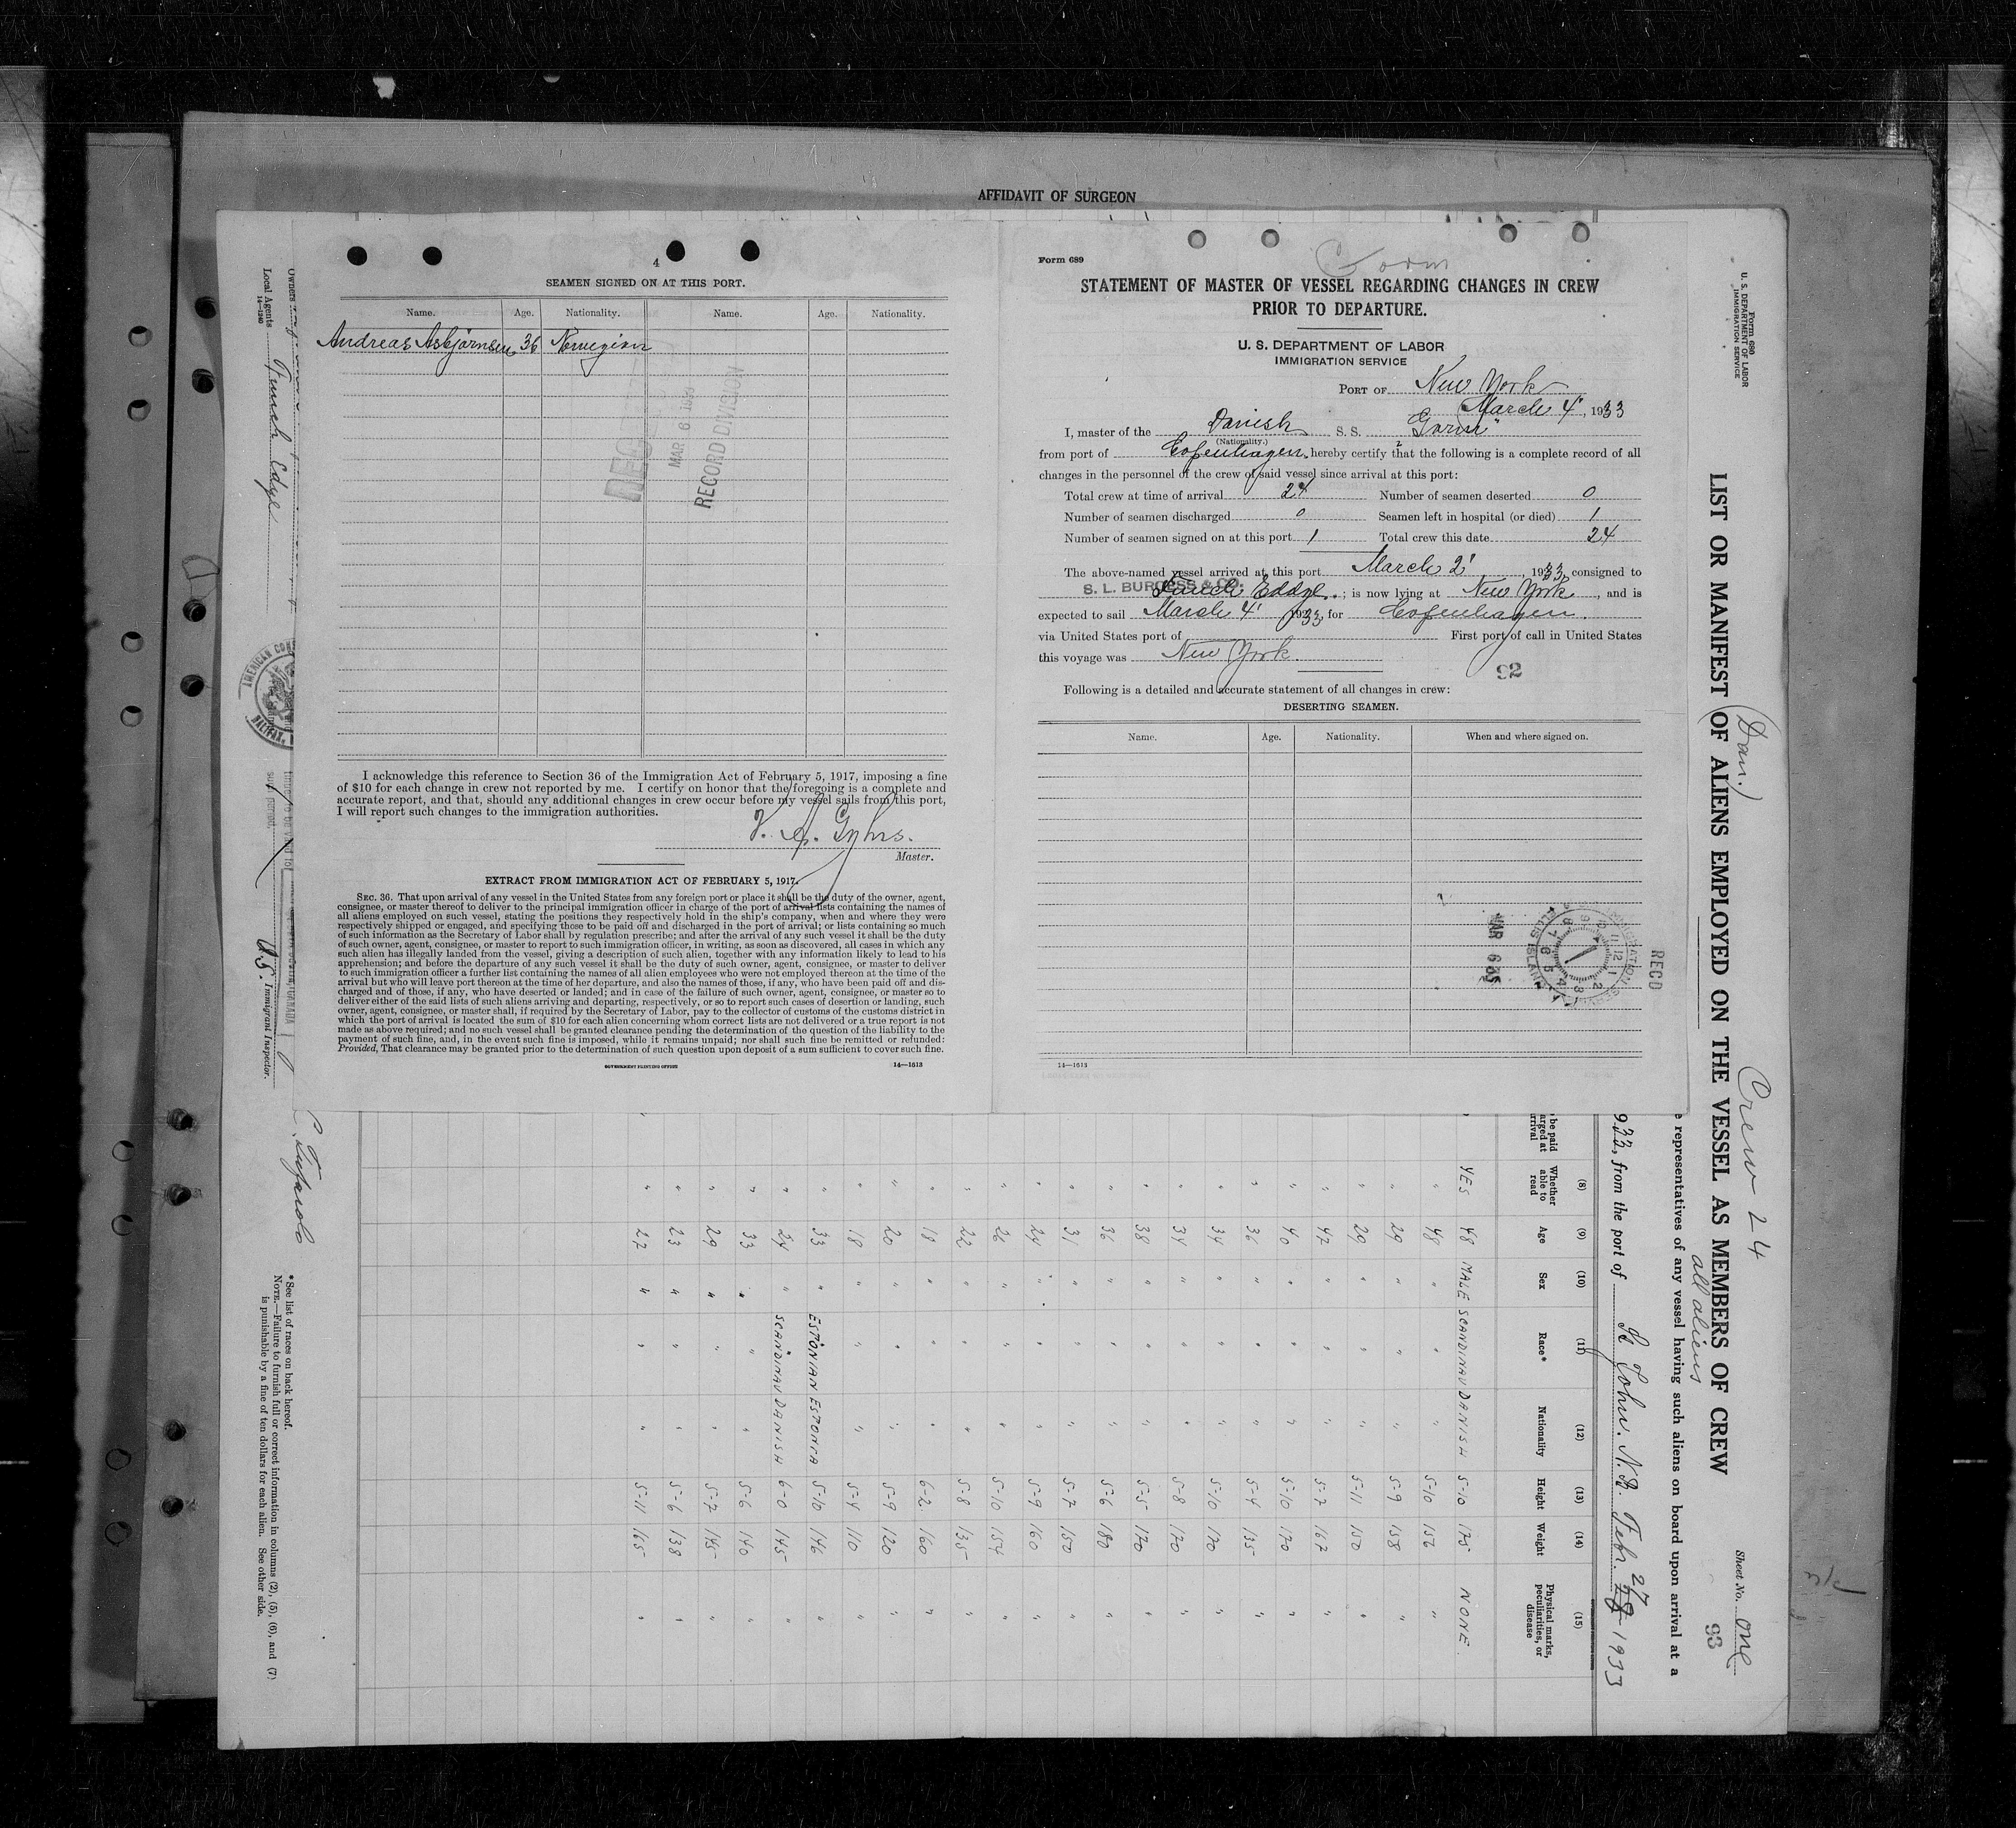 AFFIDAVIT OF SURGEON
4
SEAMEN SIGNED ON AT THIS PORT.
Name. Age. Nationality. Name. Age. Nationality.
Andreas Asbjørnsen 36 Norwegian
MAR 6 1933
RECORD DIVISION
I acknowledge this reference to Section 36 of the Immigration Act of February 5, 1917, imposing a fine
of $10 for each change in crew not reported by me. I certify on honor that the foregoing is a complete and
accurate report, and that, should any additional changes in crew occur before my vessel sails from this port,
I will report such changes to the immigration authorities.
Master.
EXTRACT FROM IMMIGRATION ACT OF FEBRUARY 5, 1917.
SEC. 36. That upon arrival of any vessel in the United States from any foreign port or place it shall be the duty of the owner, agent,
consignee, or master thereof to deliver to the principal immigration officer in charge of the port of arrival lists containing the names of
all aliens employed on such vessel, stating the positions they respectively hold in the ship's company, when and where they were
respectively shipped or engaged, and specifying those to be paid off and discharged in the port of arrival; or lists containing so much
of such information as the Secretary of Labor shall by regulation prescribe; and after the arrival of any such vessel it shall be the duty
of such owner, agent, consignee, or master to report to such immigration officer, in writing, as soon as discovered, all cases in which any
such alien has illegally landed from the vessel, giving a description of such alien, together with any information likely to lead to his
apprehension; and before the departure of any such vessel it shall be the duty of such owner, agent, consignee, or master to deliver
to such immigration officer a further list containing the names of all alien employees who were not employed thereon at the time of the
arrival but who will leave port thereon at the time of her departure, and also the names of those, if any, who have been paid off and dis-
charged and of those, if any, who have deserted or landed; and in case of the failure of such owner, agent, consignee, or master so to
deliver either of the said lists of such aliens arriving and departing, respectively, or so to report such cases of desertion or landing, such
owner, agent, consignee, or master shall, if required by the Secretary of Labor, pay to the collector of customs of the customs district in
which the port of arrival is located the sum of $10 for each alien concerning whom correct lists are not delivered or a true report is not
made as above required; and no such vessel shall be granted clearance pending the determination of the question of the liability to the
payment of such fine, and, in the event such fine is imposed, while it remains unpaid; nor shall such fine be remitted or refunded:
Provided, That clearance may be granted prior to the determination of such question upon deposit of a sum sufficient to cover such fine.
GOVERNMENT PRINTING OFFICE 14—1613
Form 689
Gorm
STATEMENT OF MASTER OF VESSEL REGARDING CHANGES IN CREW
PRIOR TO DEPARTURE.
U. S. DEPARTMENT OF LABOR
IMMIGRATION SERVICE
PORT OF New York
March 4, 1933
I, master of the Danish S. S. "Gorm"
(Nationality.)
from port of Copenhagen, hereby certify that the following is a complete record of all
changes in the personnel of the crew of said vessel since arrival at this port:
Total crew at time of arrival 24 Number of seamen deserted 0
Number of seamen discharged 0 Seamen left in hospital (or died) 1
Number of seamen signed on at this port 1 Total crew this date 24
The above-named vessel arrived at this port March 2, 1933, consigned to
S. L. BURGESS & CO. Funch Edye.; is now lying at New York, and is
expected to sail March 4 1933, for Copenhagen.
via United States port of First port of call in United States
this voyage was New York.
92
Following is a detailed and accurate statement of all changes in crew:
DESERTING SEAMEN.
Name. Age. Nationality. When and where signed on.
MAR 6
RECD
14—1613
Form 680
U. S. DEPARTMENT OF LABOR
IMMIGRATION SERVICE
Sheet No. one
93
(Dan.) Crew 24
LIST OR MANIFEST OF ALIENS EMPLOYED ON THE VESSEL AS MEMBERS OF CREW
all aliens
representatives of any vessel having such aliens on board upon arrival at a
933, from the port of St John. N.B. Febr. 27 1933
(8) (9) (10) (11) (12) (13) (14) (15)
Whether able to read Age Sex Race* Nationality Height Weight Physical marks, peculiarities, or disease
YES 48 MALE SCANDINAV DANISH 5-10 175 NONE.
" 48 " " " 5-10 156 "
" 29 " " " 5-9 158 "
" 29 " " " 5-11 150 "
" 47 " " " 5-7 167 "
" 40 " " " 5-10 170 "
" 36 " " " 5-4 135 "
" 34 " " " 5-10 170 "
" 34 " " " 5-8 170 "
" 38 " " " 5-5 170 "
" 36 " " " 5-6 180 "
" 31 " " " 5-7 150 "
" 24 " " " 5-9 160 "
" 26 " " " 5-10 154 "
" 22 " " " 5-8 135 "
" 18 " " " 6-2 160 "
" 20 " " " 5-9 120 "
" 18 " " " 5-4 110 "
" 33 " ESTONIAN ESTONIA 5-10 146 "
" 24 " SCANDINAV DANISH 6-0 145 "
" 33 " " " 5-6 140 "
" 29 " " " 5-7 145 "
" 23 " " " 5-6 138 "
" 27 " " " 5-11 165 "
*See list of races on back hereof.
NOTE.—Failure to furnish full or correct information in columns (2), (5), (6), and (7)
is punishable by a fine of ten dollars for each alien. See other side.
Owners
Local Agents Funch Edye
14—1240
Immigrant Inspector.